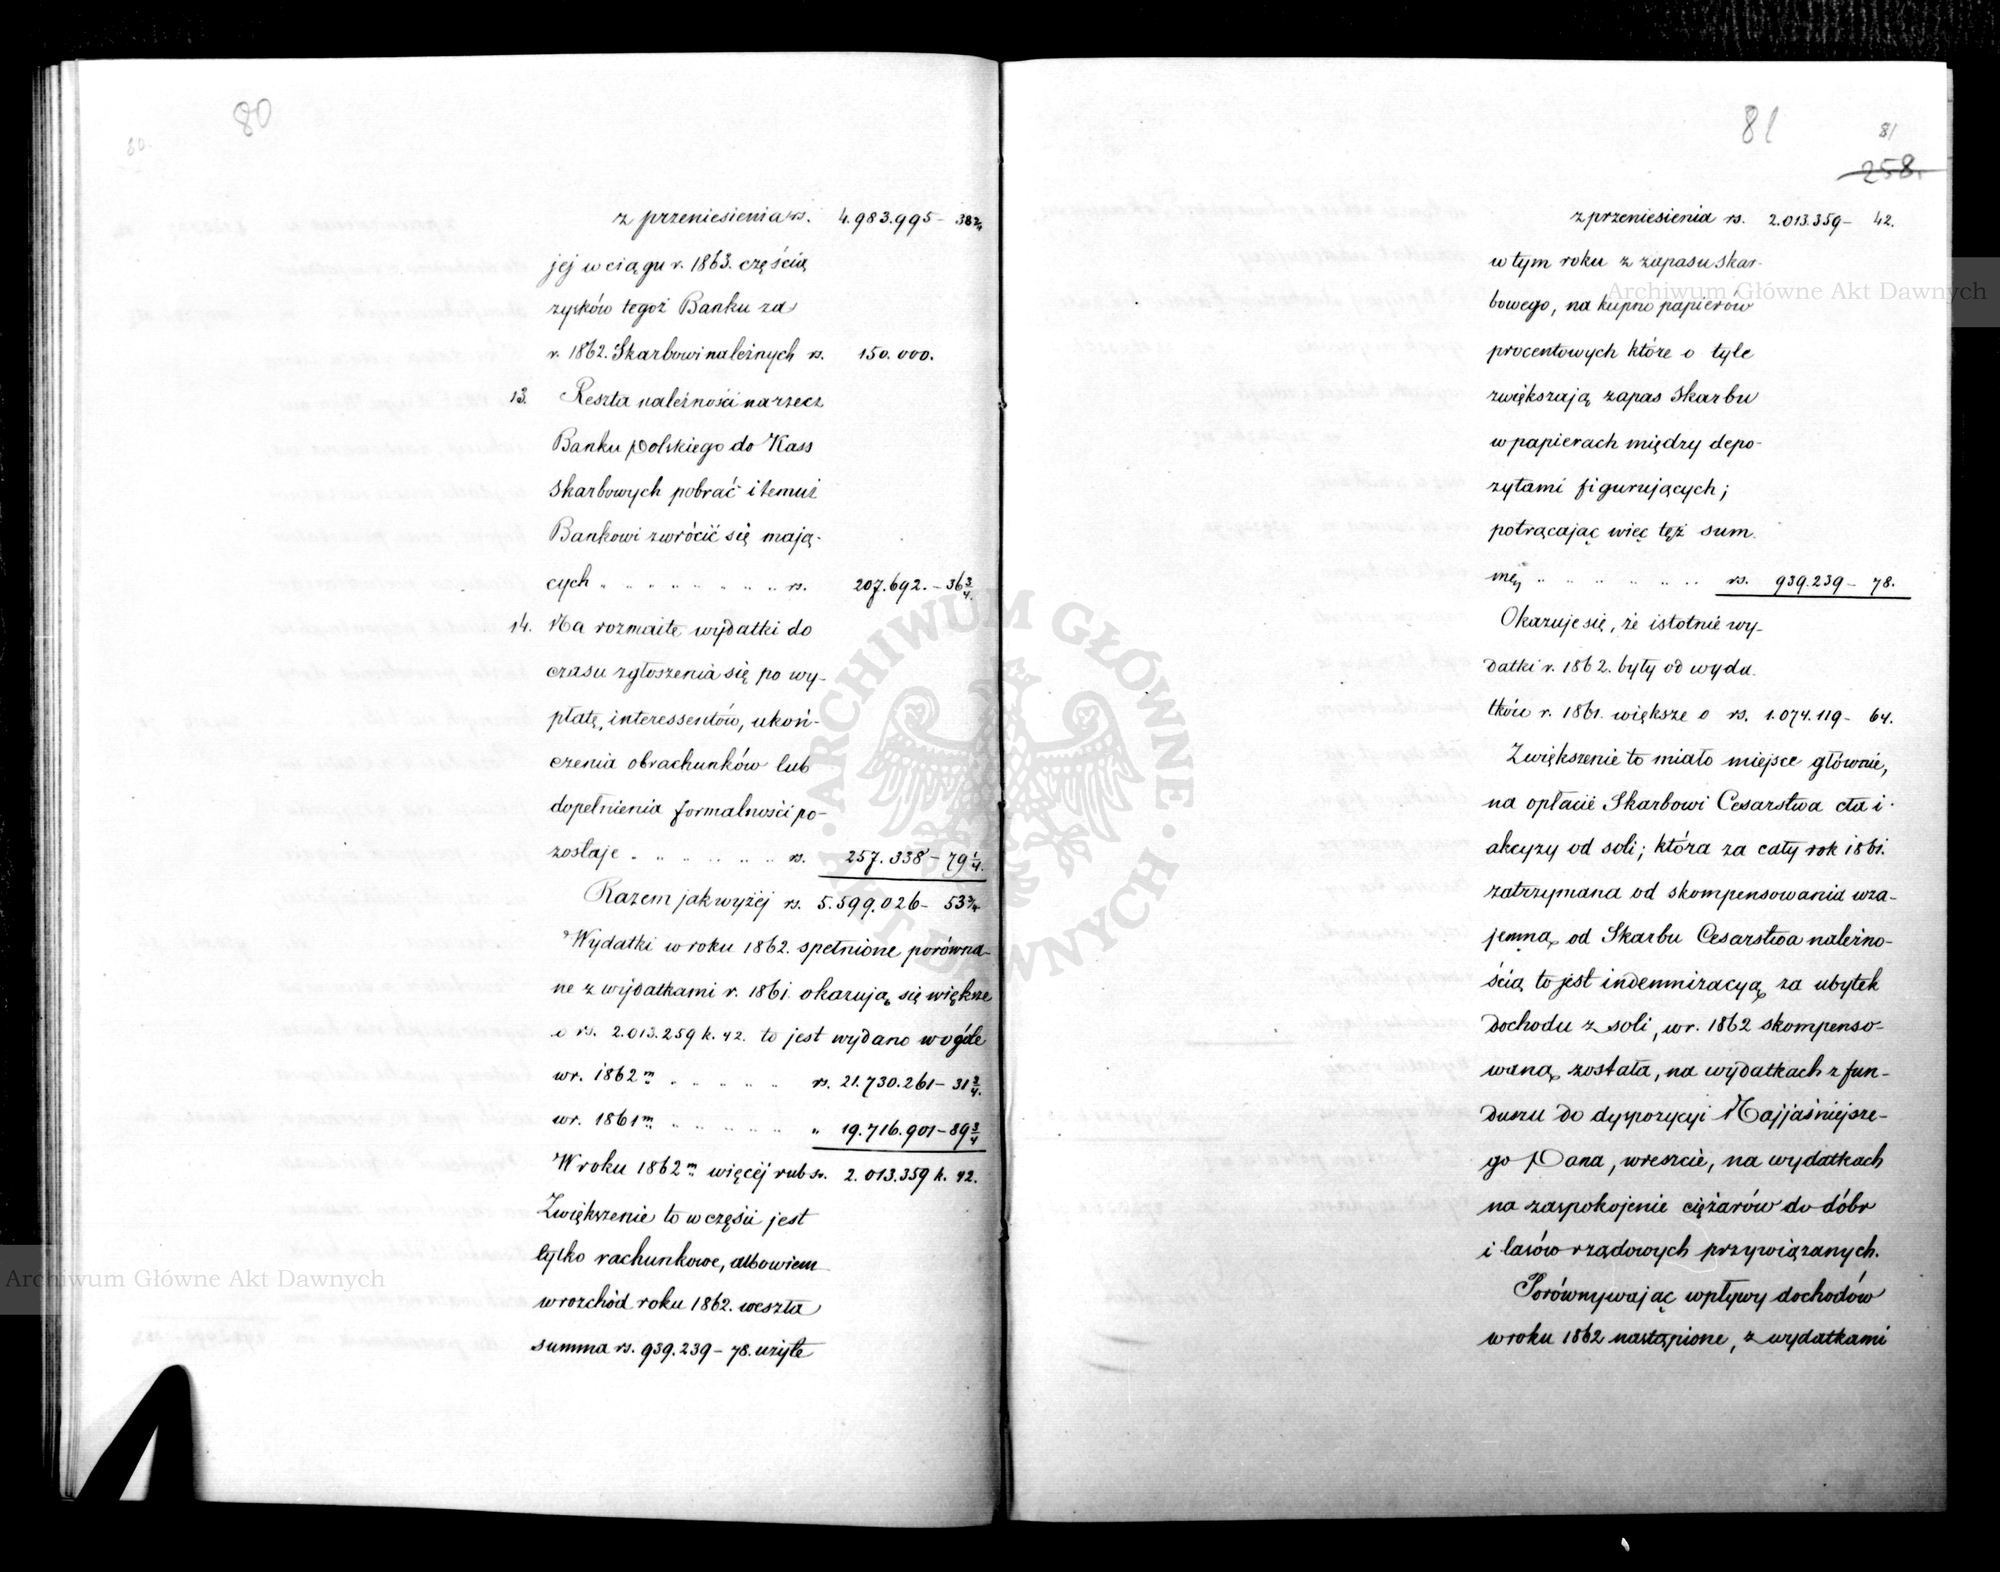 80
80.
z przeniesienia rs. 4.983.995 - 38 2/4
jej w ciągu r. 1863. częścią
zysków tegoż Banku za
r. 1862. Skarbowi należnych rs. 150.000.
13. Reszta należności na rzecz
Banku Polskiego do Kass
Skarbowych pobrać i temuż
Bankowi zwrócić się mają-
cych . . . . . . . rs. 207.692. - 36 3/4.
14. Na rozmaite wydatki do
czasu zgłoszenia się po wy-
płatę, interessentów, ukoń-
czenia obrachunków lub
dopełnienia formalności po-
zostaje . . . . . . rs. 257.338 - 79 1/4.
Razem jak wyżéj rs. 5.599.026 - 53 3/4
Wydatki w roku 1862. spełnione porówna-
ne z wydatkami r. 1861. okazują się większe
o rs. 2.013.259 k. 42. to jest wydano wogóle
w r. 1862m . . . . . rs. 21.730.261 - 31 3/4.
w r. 1861m . . . . . „ 19.716.901 - 89 3/4
W roku 1862m więcéj rub sr. 2.013.359 k. 42.
Zwiększenie to w części jest
tylko rachunkowe, albowiem
w rozchód roku 1862. weszła
summa rs. 939.239 - 78. użyte
81
81
258.
z przeniesienia rs. 2.013.359 - 42.
w tym roku z zapasu skar-
bowego, na kupno papierów
procentowych które o tyle
zwiększają zapas Skarbu
w papierach między depo-
zytami figurujących;
potrącając więc tęż sum.
mę . . . . . . rs. 939.239 - 78.
Okazuje się, że istotnie wy-
datki r. 1862. były od wyda.
tków r. 1861. większe o rs. 1.074.119 - 64.
Zwiększenie to miało miejsce głównie,
na opłacie Skarbowi Cesarstwa cła i
akcyzy od soli; która za cały rok 1861.
zatrzymana od skompensowania wza-
jemną, od Skarbu Cesarstwa należno-
ścią to jest indemnizacyą, za ubytek
dochodu z soli, w r. 1862 skompenso-
waną, została, na wydatkach z fun-
duszu do dyspozycyi Najjaśniejsze-
go Pana, wreszcie, na wydatkach
na zaspokojenie ciężarów do dóbr
i lasów rządowych przywiązanych.
Porównywając wpływy dochodów
w roku 1862 nastąpione, z wydatkami
Archiwum Główne Akt Dawnych
Archiwum Główne Akt Dawnych
ARCHIWUM GŁÓWNE · AKT DAWNYCH ·